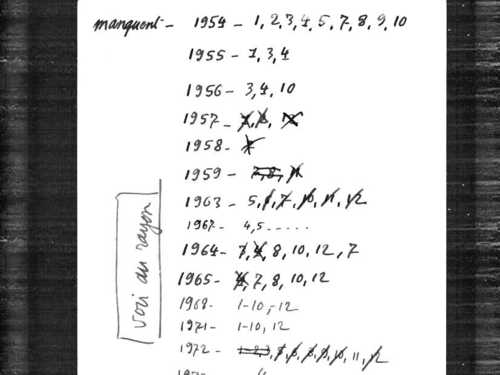 manquent - 1954 - 1, 2, 3, 4, 5, 7, 8, 9, 10
1955 - 1, 3, 4
1956 - 3, 4, 10
1957 -
1958 -
1959 - 7, 8,
1963 - 5, 6, 7, 10, 11, 12
1967 - 4, 5 - . . . .
1964 - 7, 4, 8, 10, 12, 7
1965 - 4, 7, 8, 10, 12
1968 - 1-10, -12
1971 - 1-10, 12
1972 - 1-2-3, 11, 12
voir au rayon